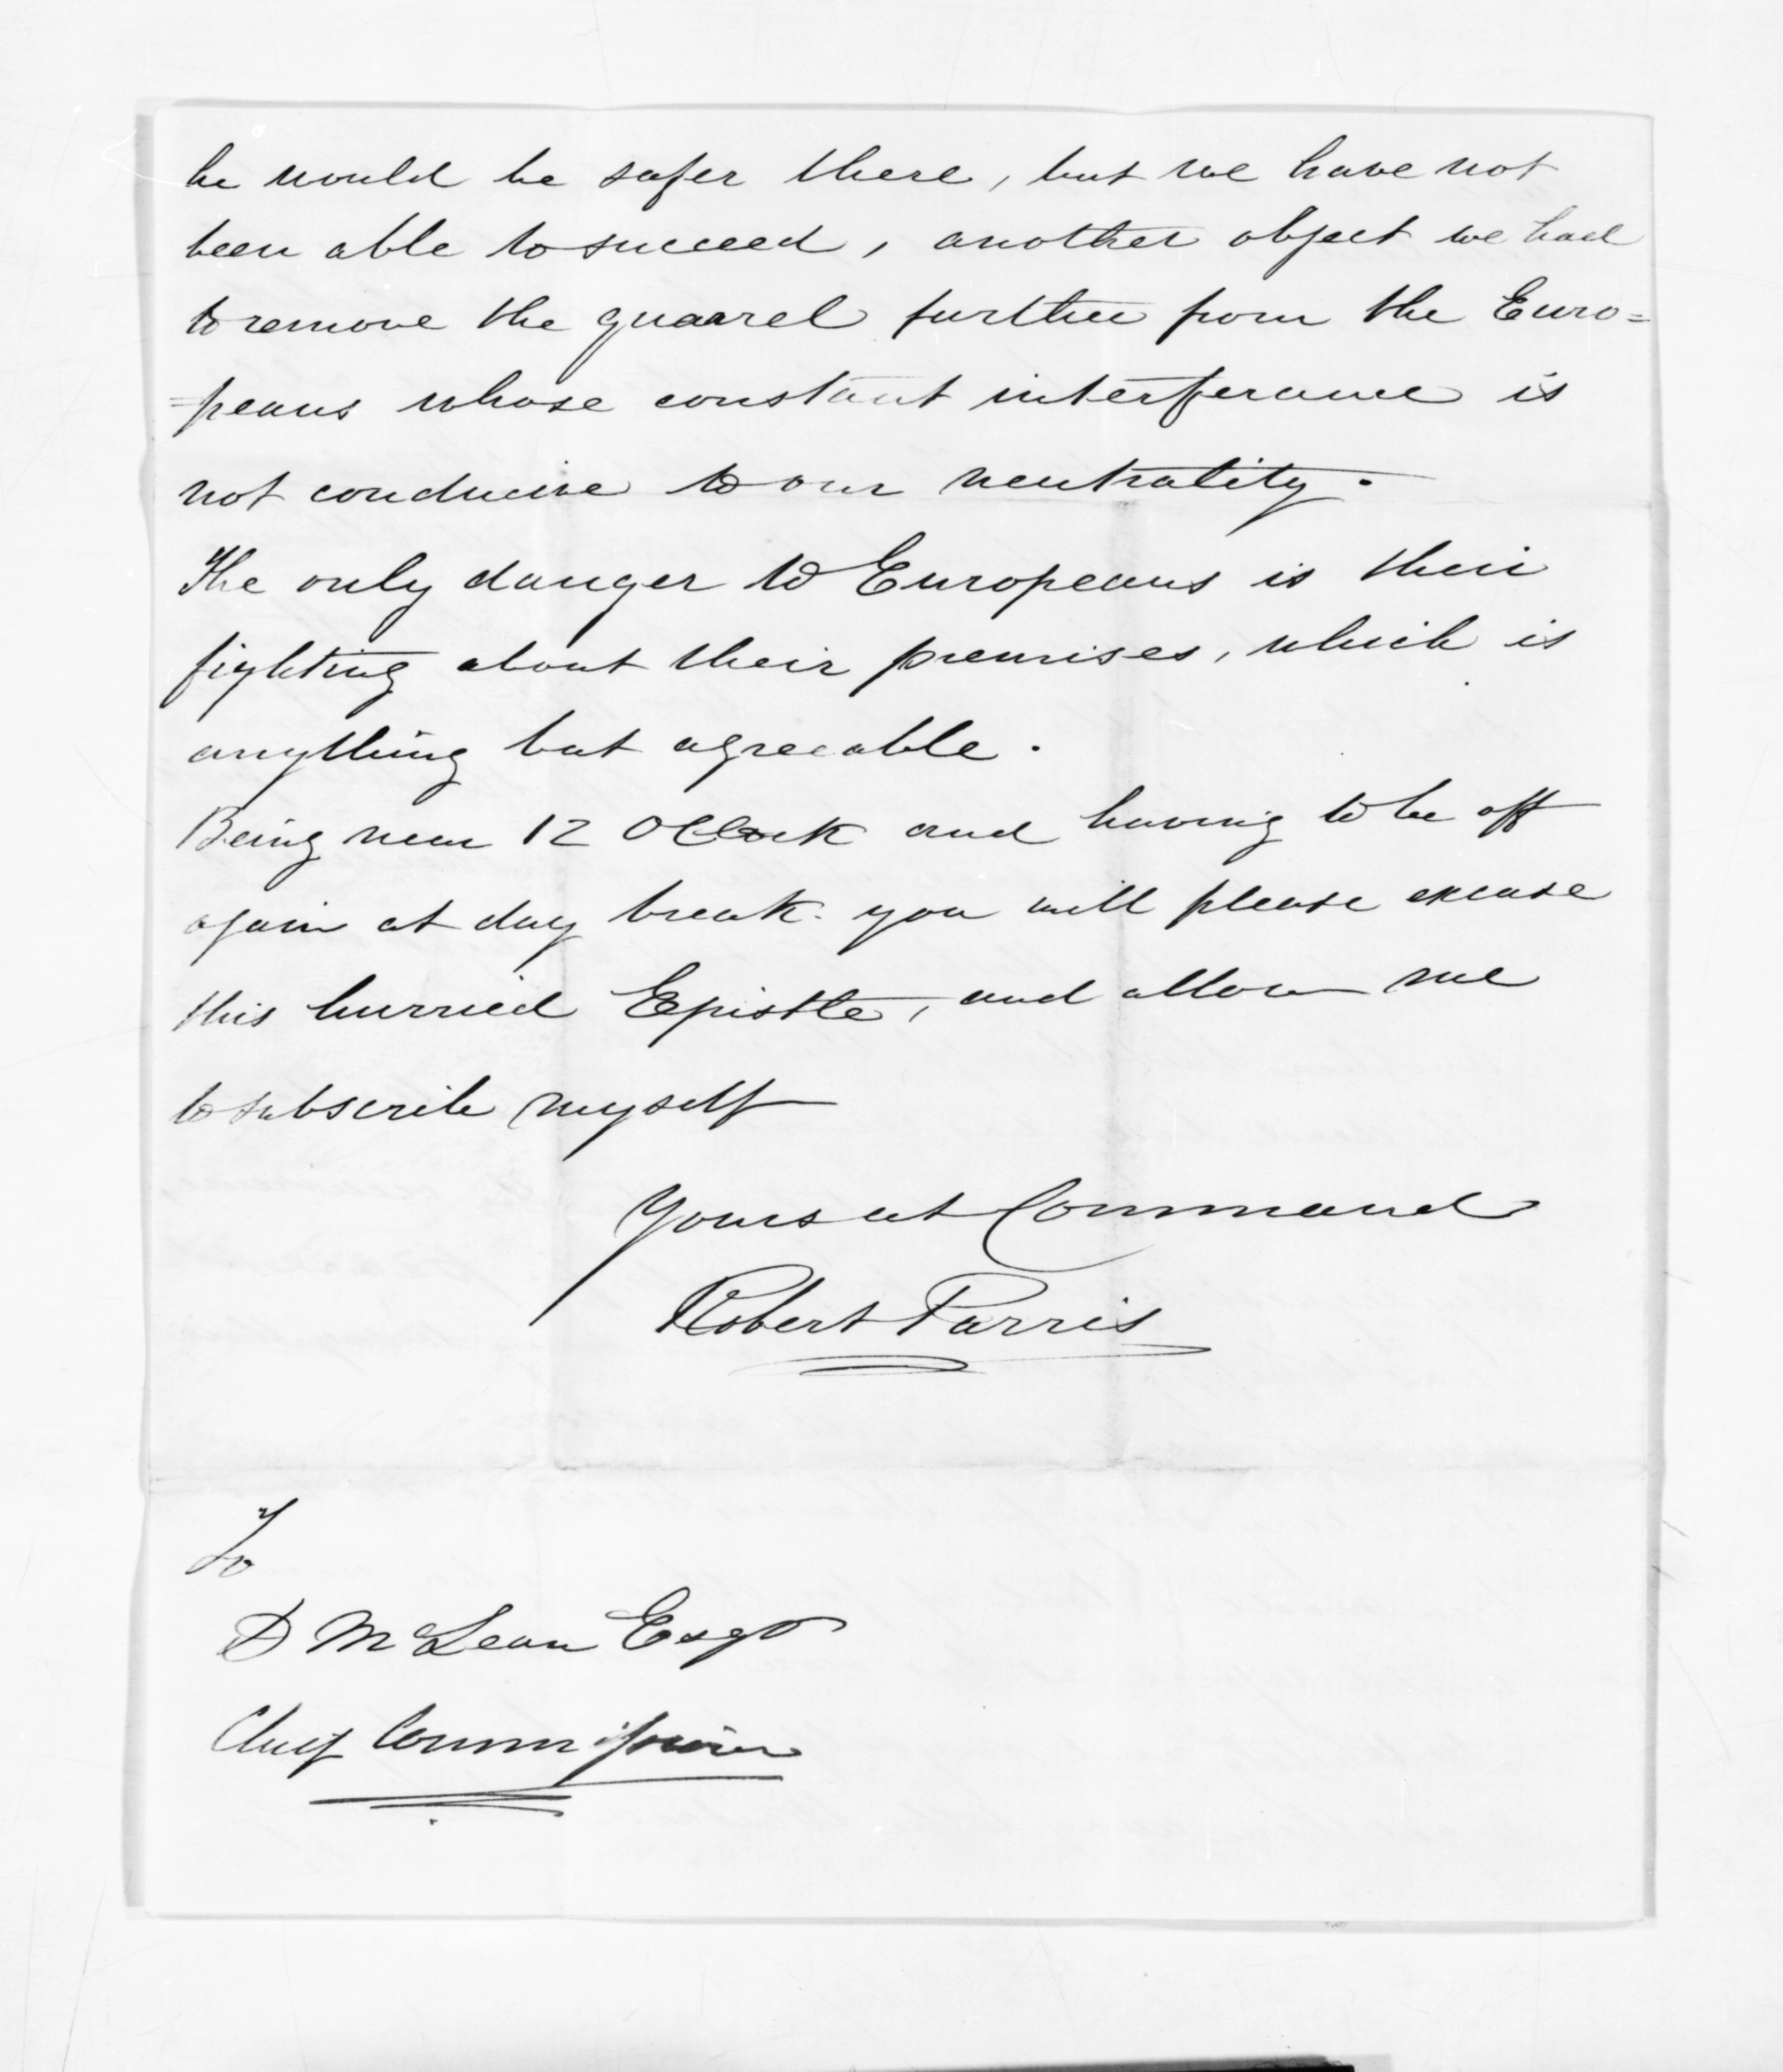 he would be safer there, but we have not
been able to succeed, another object we had
to remove the quaarel further from the Euro=
=peans whose constant interferance is
not conducive to our neutrality.
The only danger to Europeans is their
fighting about their premises, which is
anything but agreeable.
Being near 12 OClock and having to be off
again at day break. you will please excuse
this hurried Epistle, and allow me
to subscribe myself
Yours at Command
Robert Parris
To
D McLean Esqr
Chief Commissioner